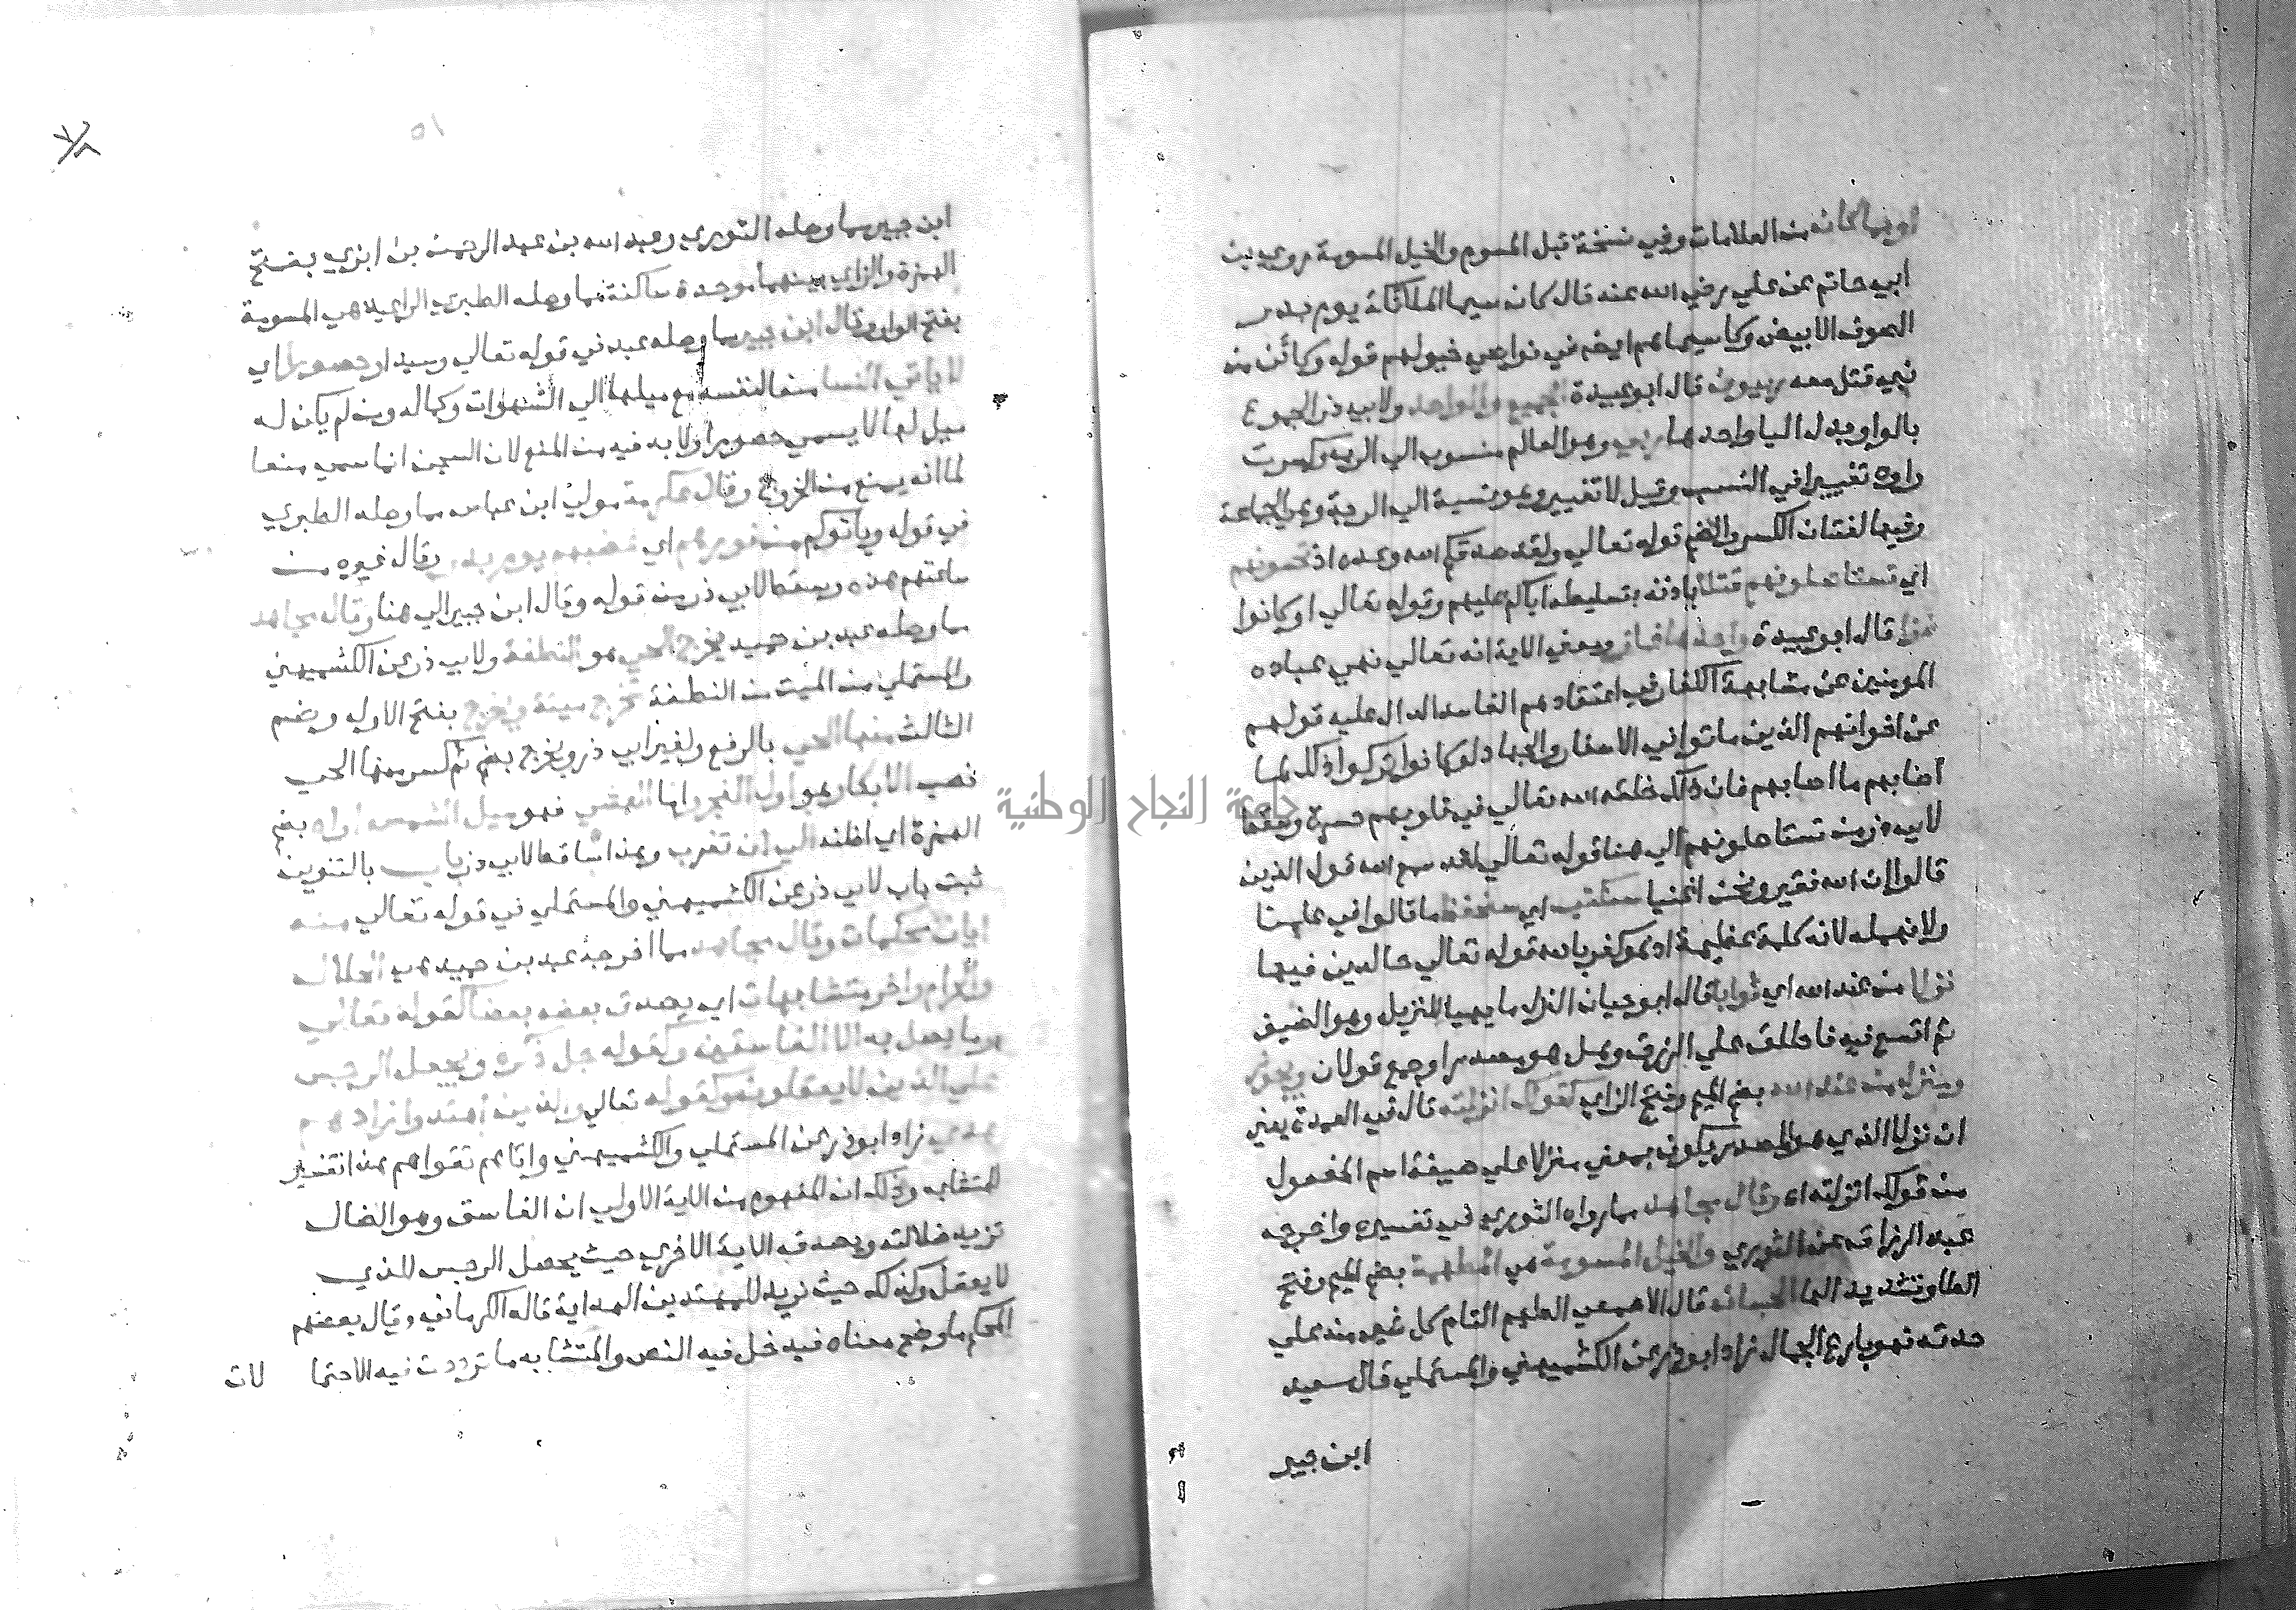 او بما كان من العلامات وفي نسخة قبل المسوم والخيل المسومة وروي بن
ابي حاتم عن علي رضي الله عنه قال كان سيما الملائكة يوم بدر
الصوف الابيض وكان سيماهم ايضا في نواصي خيولهم قوله وكأين من
نبي قتل معه ربيون قال ابو عبيدة الجميع والواحد ولابي ذر الجموع
بالواو بدل اليا واحدها ربي وهو العالم منسوب الي الرب وكسرت
راوه تغييرا في النسب وقيل لا تغيير وهو نسبة الي الربة وهي الجماعة
وفيها لغتان الكسر والضم قوله تعالي ولقد صدقكم الله وعده اذ تحسونهم
اي تستاصلونهم قتلا باذنه بتسليطه اياكم عليهم وقوله تعالي او كانوا
غزا قال ابو عبيدة واحدها غاز ومعني الاية انه تعالي نهي عباده
المومنين عن مشابهة الكفار في اعتقادهم الفاسد الدال عليه قولهم
عن اخوانهم الذين ماتوا في الاسفار والجهاد لو كانوا تركوا ذلك لما
اصابهم ما اصابهم فان ذلك خلقه الله تعالي في قلوبهم حسرة وسقط
لابي ذر من تستاصلونهم الي هنا قوله تعالي لقد سمع الله قول الذين
قالوا ان الله فقير ونحن اغنيا سنكتب اي سنحفظ ما قالوا في علمنا
ولا نهمله لانه كلمة عظيمة اذ هو كفر بالله قوله تعالي خالدين فيها
نزلا من عند الله اي ثوابا قال ابو حيان النزل ما يهيا للنزيل وهو الضيف
ثم اتسع فيه فاطلق علي الرزق وهل هو مصدر او جمع قولان ويجوز
ومنزل من عند الله بضم الميم وفتح الزاي كقولك انزلته قال في العمدة يعني
ان نزلا الذي هو المصدر يكون بمعني منزلا علي صيغة اسم المفعول
من قولك انزلته اه وقال مجاهد مما رواه الثوري في تفسيره واخرجه
عبد الرزاق عن الثوري والخيل المسومة هي المطهمة بضم الميم وفتح
الطا وتشديد الها الحسان قال الاصمعي المطهم التام كل شي منه علي
حدته فهو بارع الجمال زاد ابو ذر عن الكشميهني والمستملي قال سعيد
ابن جبير
٥١
ابن جبير مما وصله الثوري وعبد الله بن عبد الرحمن بن ابزي بفتح
الهمزة والزاي بينهما موحدة ساكنة مما وصله الطبري الراعية هي المسومة
بفتح الواو وقال ابن جبير مما وصله عبد في قوله تعالي وسيدا وحصورا اي
لا ياتي النسا منعا لنفسه مع ميلها الي الشهوات وكماله ومن لم يكن له
ميل لها لا يسمي حصورا ولا بد فيه من المنع لان السجن انما سمي منعا
لما انه يمنع من الخروج وقال عكرمة مولي ابن عباس مما وصله الطبري
في قوله وياتوكم من فورهم اي غضبهم يوم بدر وقال غيره من
ساعتهم هذه وسقط لابي ذر من قوله وقال ابن جبير الي هنا وقال مجاهد
مما وصله عبد بن حميد يخرج الحي هو النطفة ولابي ذر عن الكشميهني
والمستملي من الميت من النطفة تخرج ميتة ويخرج بفتح الاول وضم
الثالث منها الحي بالرفع ولغير ابي ذر ويخرج بضم ثم كسر منها الحي
نصب الابكار هو اول الفجر واما العشي فهو ميل الشمس اراه بضم
الهمزة اي اظنه الي ان تغرب وهذا ساقط لابي ذر باب بالتنوين
ثبت باب لابي ذر عن الكشميهني والمستملي في قوله تعالي منه
ايات محكمات وقال مجاهد مما اخرجه عبد بن حميد هي الحلال
والحرام واخر متشابهات اي يصدق بعضه بعضا كقوله تعالي
وما يضل به الا الفاسقين وكقوله جل ذكره ويجعل الرجس
علي الذين لا يعقلون وكقوله تعالي والذين اهتدوا زادهم
هدي زاد ابو ذر عن المستملي والكشميهني واتاهم تقواهم هذا تفسير
للمتشابه وذلك ان المفهوم من الاية الاولي ان الفاسق وهو الضال
تزيد ضلالته وصدقه الاية الاخري حيث يحصل الرجس للذي
لا يعقل وكذلك حيث تزيد للمهتدين الهداية قاله الكرماني وقال بعضهم
المحكم ما وضح معناه فيدخل فيه النص والمتشابه ما ترددت فيه الاحتمالات
جامعة النجاح الوطنية